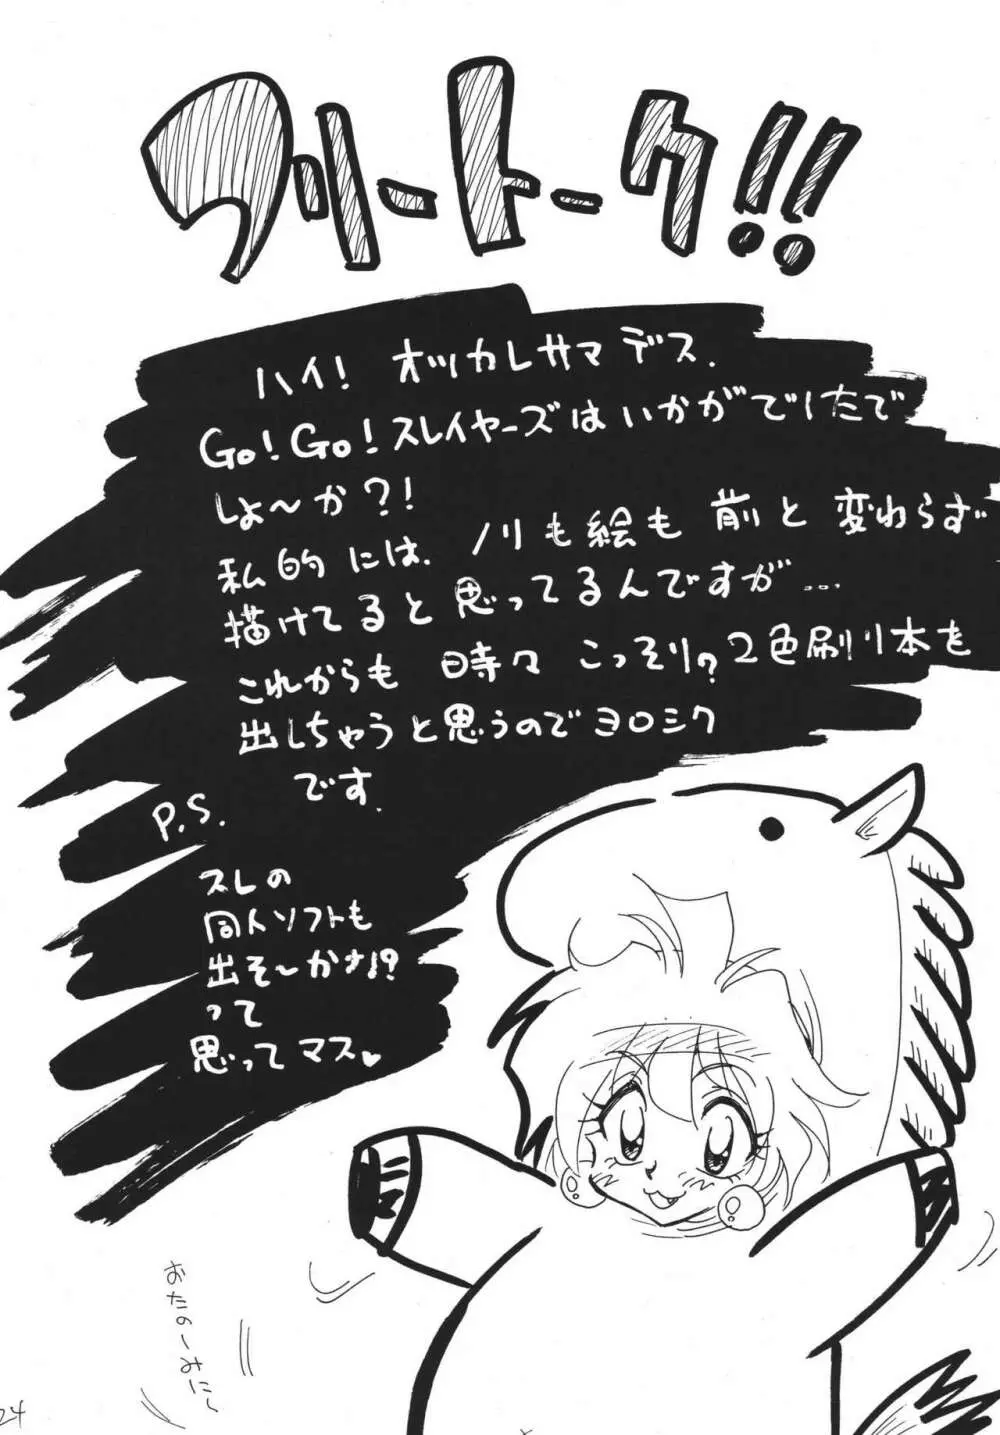 フリートーク!!
ハイ! オツカレサマデス.
Go! Go! スレイヤーズはいかがでしたで
しょ〜か?!
私的には、ノリも絵も前と変わらず
描けてると思ってるんですが…
これからも時々こっそり?2色刷り本を
出しちゃうと思うのでヨロシク
です.
P.S.
スレの
同人ソフトも
出そ〜かな!?
って
思ってマス♥
おたのーみにー
24